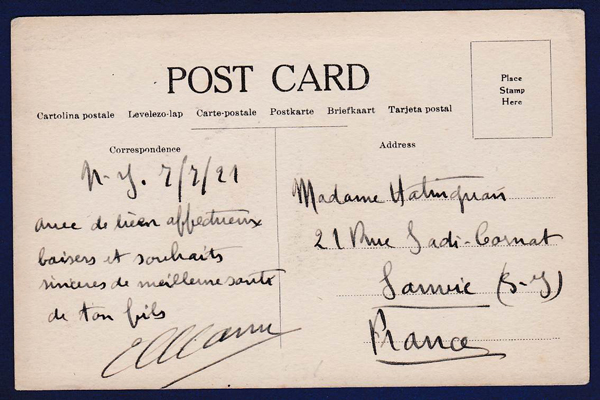 POST CARD
Place
Stamp
Here
Cartolina postale Levelezo-lap Carte-postale Postkarte Briefkaart Tarjeta postal
Correspondence
Address
N-Y. 7/7/21
avec de bien affectueux
baisers et souhaits
sincères de meilleure santé
de ton fils
Madame
21 Rue Sadi-Carnot
Sannois (S-O)
France